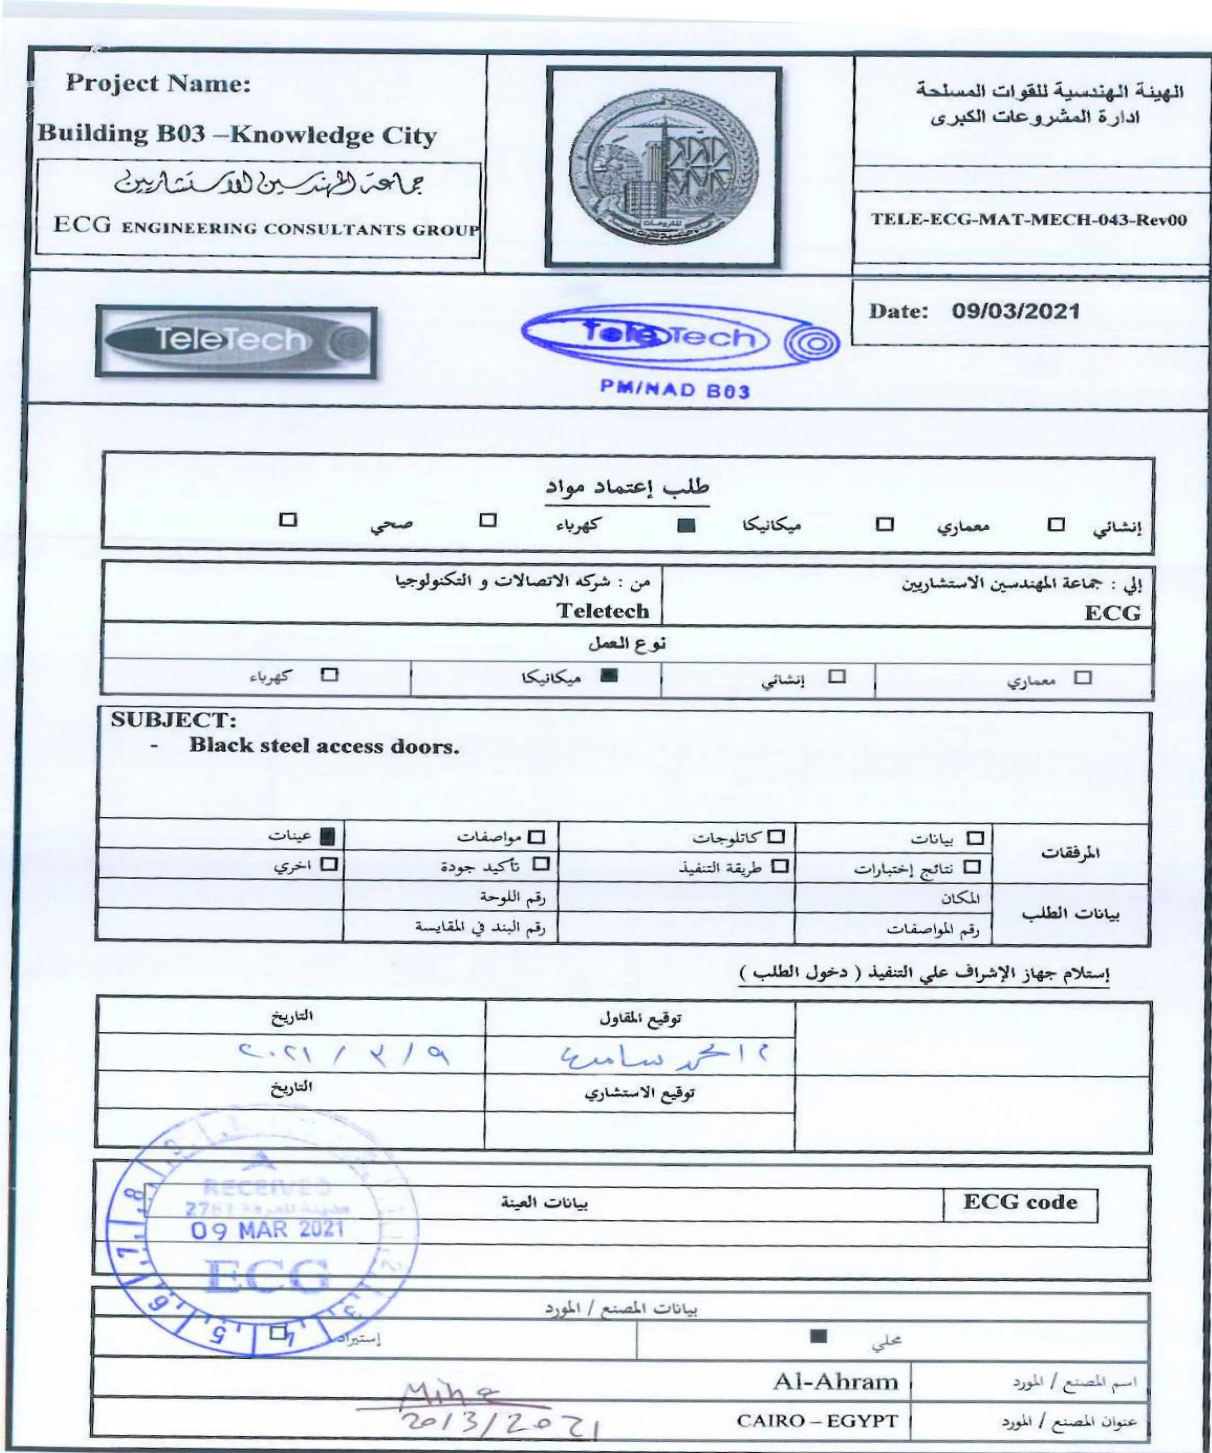 Project Name:
Building B03 –Knowledge City
جماعة المهندسين الاستشاريين
ECG ENGINEERING CONSULTANTS GROUP
الهيئة الهندسية للقوات المسلحة
ادارة المشروعات الكبرى
TELE-ECG-MAT-MECH-043-Rev00
Date: 09/03/2021
TeleTech
TeleTech
PM/NAD B03
طلب إعتماد مواد
إنشائي □ معماري □ ميكانيكا ■ كهرباء □ صحي □
إلي : جماعة المهندسين الاستشاريين
ECG
من : شركه الاتصالات و التكنولوجيا
Teletech
نوع العمل
□ معماري □ إنشائي ■ ميكانيكا □ كهرباء
SUBJECT:
- Black steel access doors.
المرفقات
□ بيانات □ كاتلوجات □ مواصفات ■ عينات
□ نتائج إختبارات □ طريقة التنفيذ □ تأكيد جودة □ اخري
بيانات الطلب
المكان رقم اللوحة
رقم المواصفات رقم البند في المقايسة
إستلام جهاز الإشراف علي التنفيذ ( دخول الطلب )
توقيع المقاول التاريخ
م احمد سامي ٩ / ٣ / ٢٠٢١
توقيع الاستشاري التاريخ
ECG code
بيانات العينة
RECEIVED
مدينة المعرفة 2781
09 MAR 2021
ECG
بيانات المصنع / المورد
محلي ■ إستيراد □
اسم المصنع / المورد Al-Ahram
عنوان المصنع / المورد CAIRO – EGYPT
20/3/2021